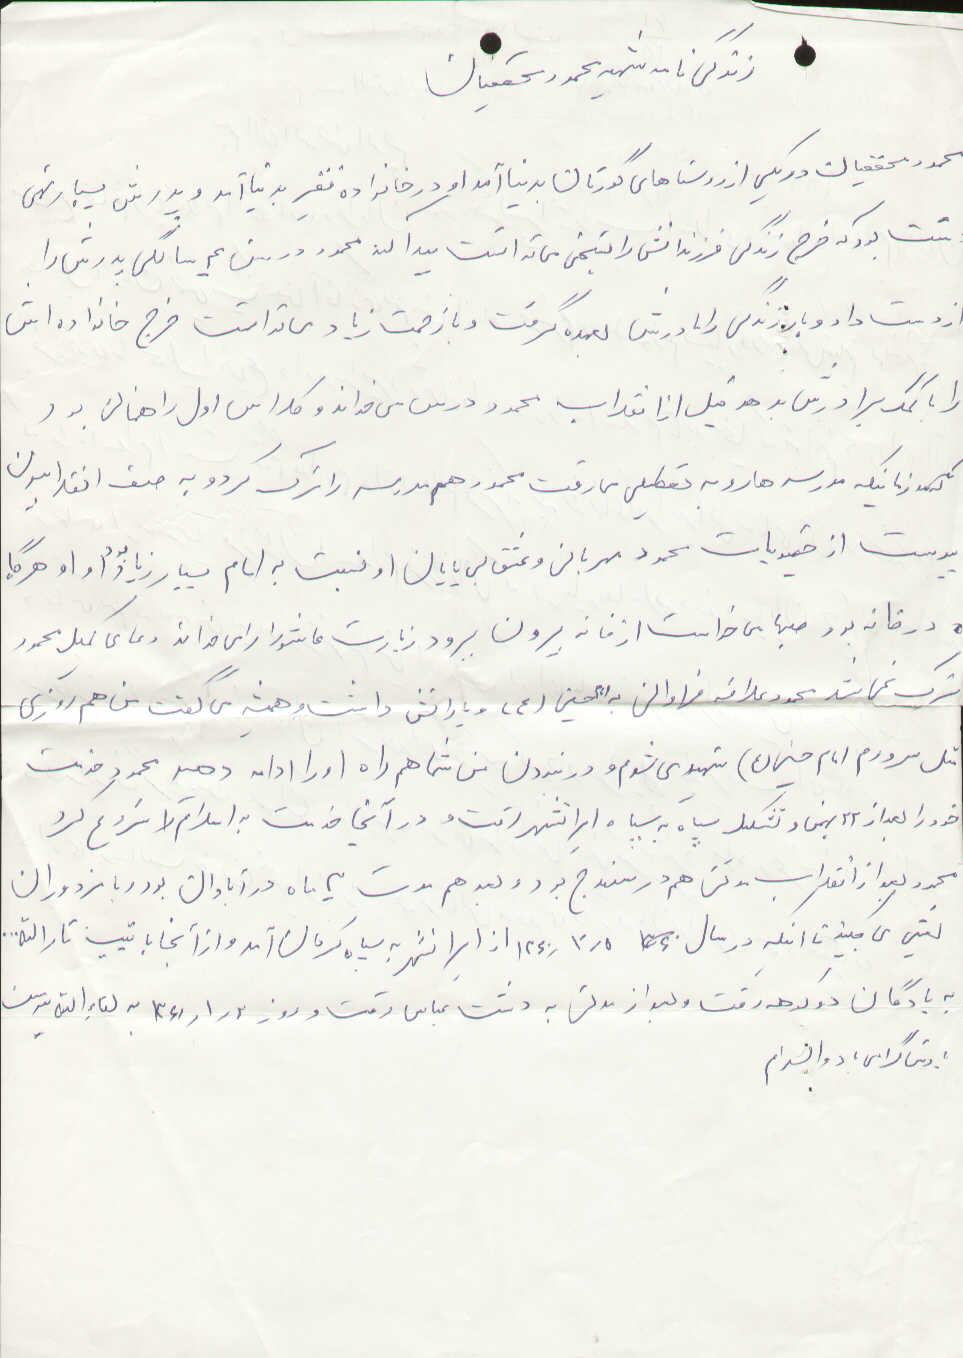 زندگی نامه شهید محمود محققیان
محمود محققیان در یکی از روستاهای گورتان بدنیا آمد او در خانواده فقیر بدنیا آمد و پدرش بسیار تهی
دست بود که خرج زندگی فرزندانش را بسختی می توانست پیدا کند محمود در سن سالگی پدرش را
از دست داد و بار زندگی را مادرش بعهده گرفت و با زحمت زیاد می توانست خرج خانواده اش
را با کمک برادرش بدهد قبل از انقلاب محمود درس می خواند و کلاس اول راهنمائی بود
زمانیکه مدرسه ها رو به تعطیلی می رفت محمود هم مدرسه را ترک کرد و به صف انقلابیون
پیوست از خصوصیات محمود مهربانی و عشق بی پایان او نسبت به امام بسیار زیاد بود و او هرگاه
در خانه بود صبحها می خواست از خانه بیرون برود زیارت عاشورا را می خواند دعای کمیل محمود
ترک نمی شد محمود علاقه فراوانی به حسین (ع) و یارانش داشت و همیشه می گفت من هم روزی
مثل سرورم امام حسین (ع) شهید می شوم و در نبودن من شما هم راه او را ادامه دهید محمود خدمت
خود را بعد از ۲۲ بهمن و تشکیل سپاه به سپاه ایرانشهر رفت و در آنجا خدمت به اسلام را شروع کرد
محمود بعد از انقلاب مدتی هم در سنندج بود و بعد هم مدت ماه در آبادان بود و با مزدوران
بعثی می جنگید تا اینکه در سال ۱۳۶۰٫۳٫۵ از ایرانشهر به سپاه کرمان آمد و از آنجا با تیپ ثارالله...
به پادگان دو کوهه رفت و بعد از مدتی به دشت عباس رفت و روز ۲ر۱ر۱۳۶۱ به لقاءالله پیوست
یادش گرامی باد والسلام